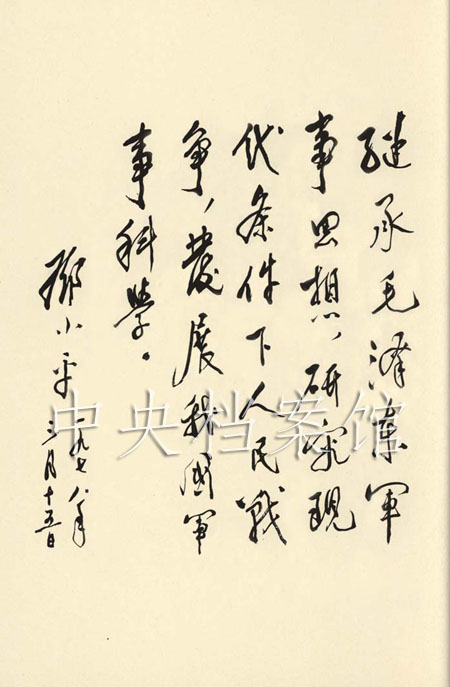 继承毛澤東軍
事思想，研究現
代条件下人民戰
争，發展我國軍
事科學。
鄧小平
一九七八年
三月十五日
中央档案馆